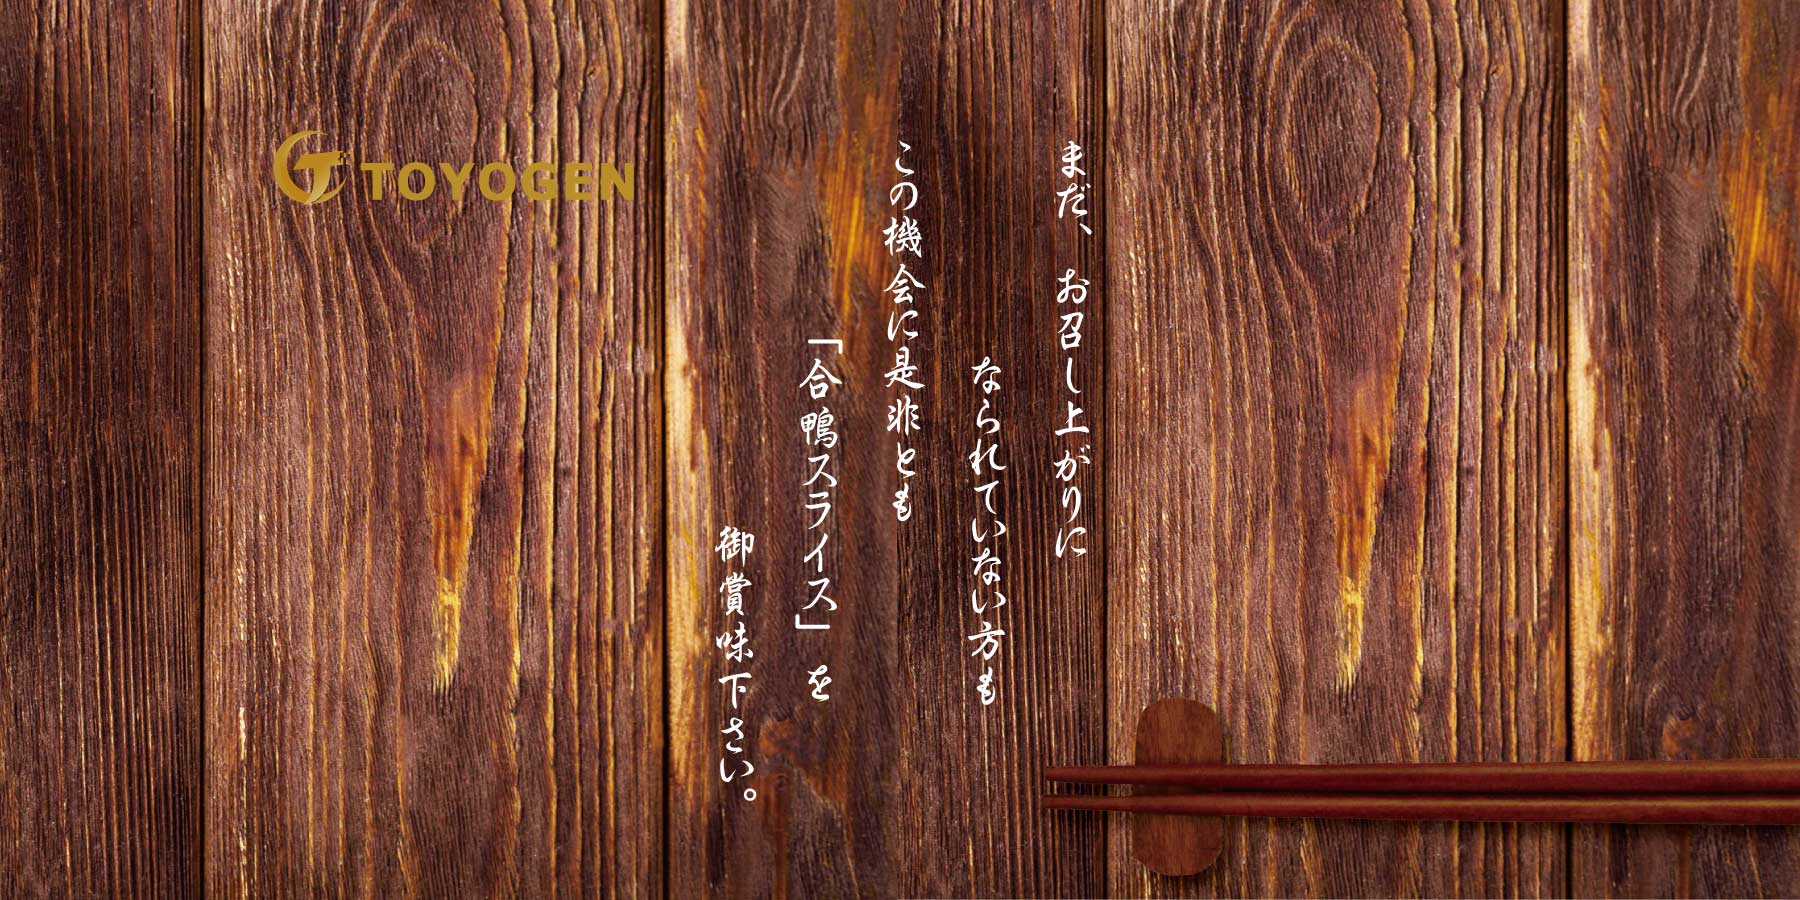 TOYOGEN
まだ、お召し上がりに
なられていない方も
この機会に是非とも
「合鴨スライス」を
御賞味下さい。